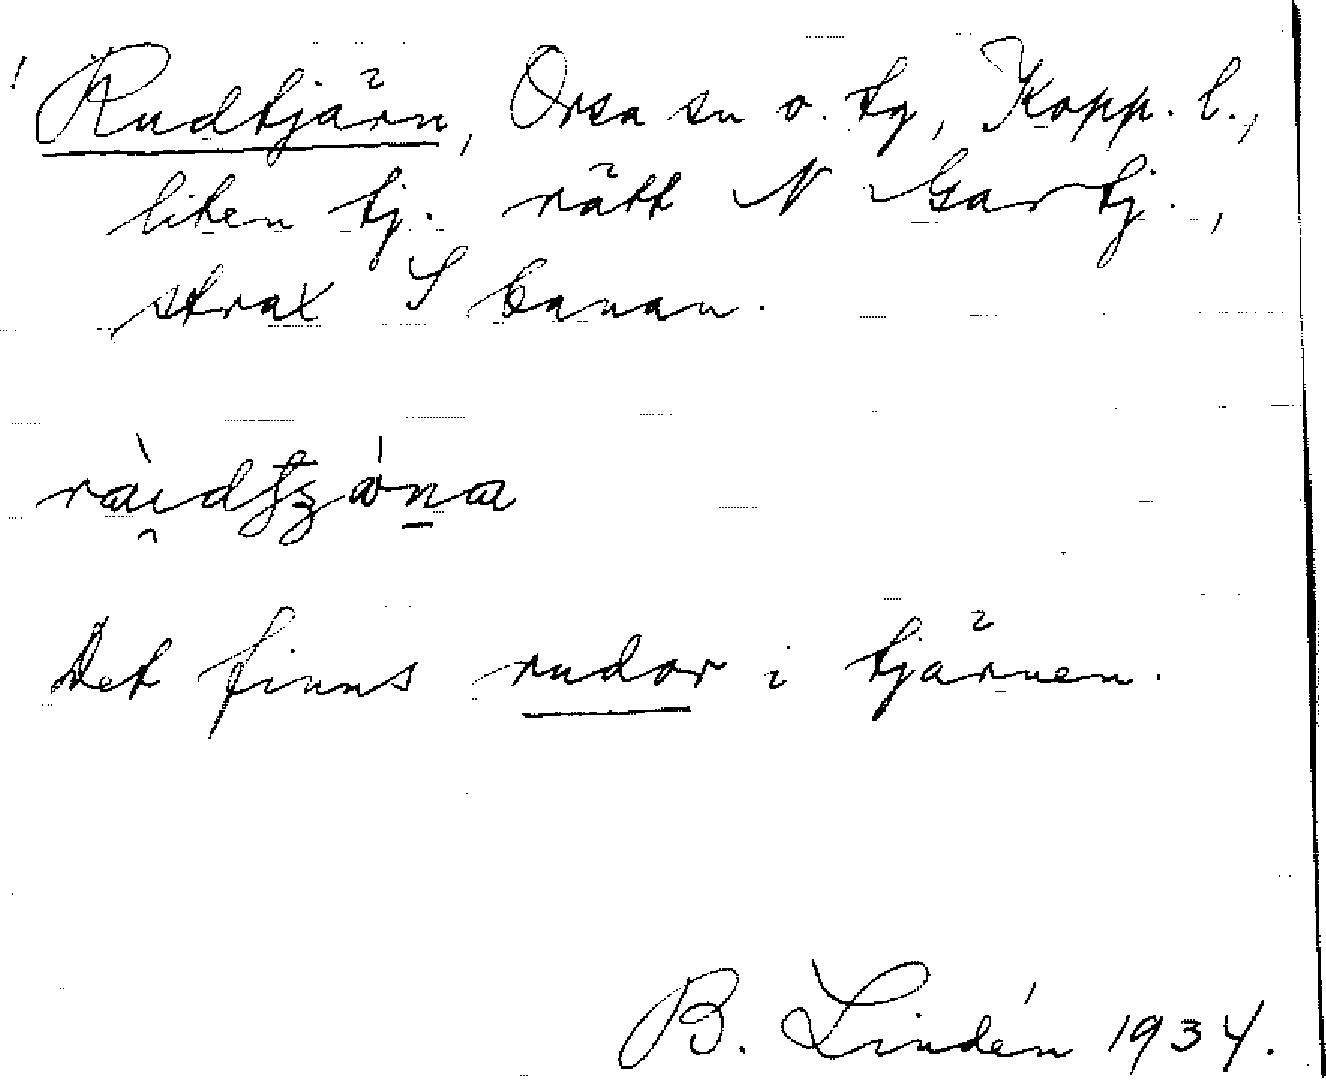 ! Rudtjärn, Orsa sn o. tg, Kopp. l.,
liten tj. rätt N Gartj.,
strax S banan.
Det finns rudor i tjärnen.
B. Lindén 1934.